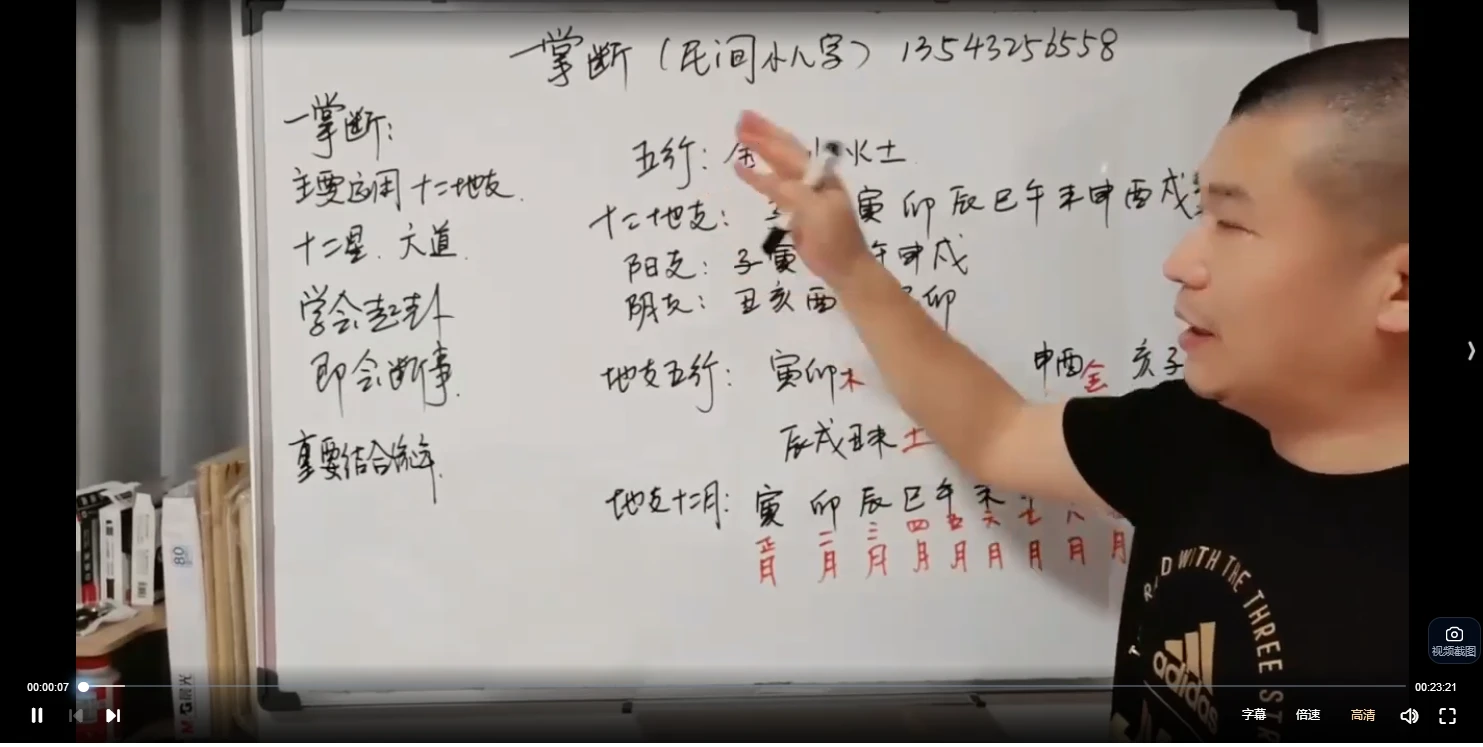 一掌断（民间小八字）13543256558
一掌断：
主要应用十二地支.
十二星、六道.
学会起卦
即会断事.
重要结合流年.
五行：金 水火土
十二地支： 寅卯辰巳午未申酉戌
阳支：子寅 午申戌
阴支：丑亥酉 卯
地支五行：寅卯木 申酉金 亥子
辰戌丑未土
地支十二月：寅卯辰巳午未
正月 二月 三月 四月 五月 六月 七月 八月 月
80
M&G晨光
WITH THE THREE ST
adidas
视频截图
00:00:07
00:23:21
字幕 倍速 高清